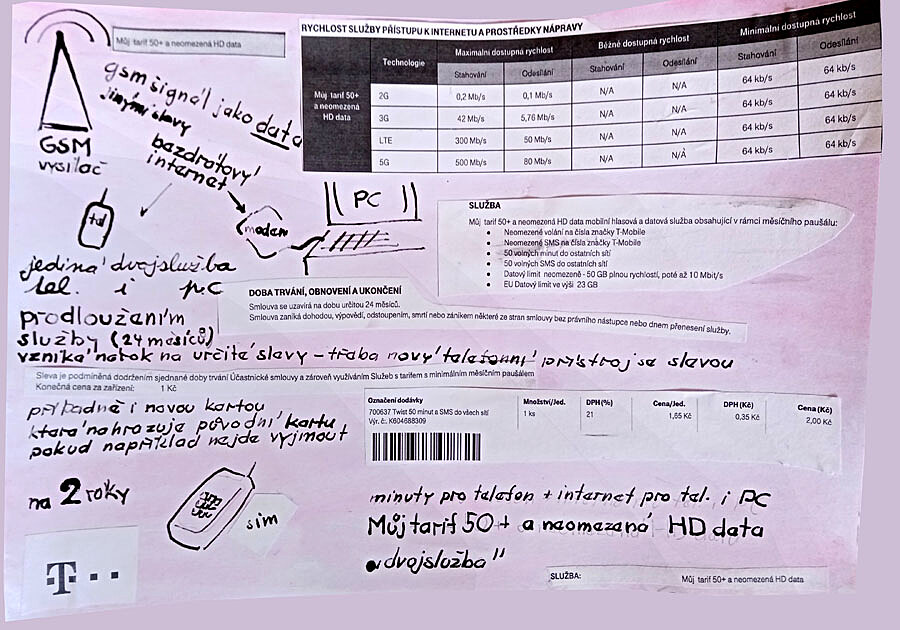 Můj tarif 50+ a neomezená HD data
RYCHLOST SLUŽBY PŘÍSTUPU K INTERNETU A PROSTŘEDKY NÁPRAVY
Technologie
Maximální dostupná rychlost
Běžně dostupná rychlost
Minimální dostupná rychlost
Stahování Odesílání Stahování Odesílání Stahování Odesílání
Můj tarif 50+
a neomezená
HD data
2G 0,2 Mb/s 0,1 Mb/s N/A N/A 64 kb/s 64 kb/s
3G 42 Mb/s 5,76 Mb/s N/A N/A 64 kb/s 64 kb/s
LTE 300 Mb/s 50 Mb/s N/A N/A 64 kb/s 64 kb/s
5G 500 Mb/s 80 Mb/s N/A N/A 64 kb/s 64 kb/s
gsm signál jako data
jinými slovy
bezdrátový
internet
GSM
vysílač
tel
modem
PC
jediná dvojslužba
tel. i pc
SLUŽBA
Můj tarif 50+ a neomezená HD data mobilní hlasová a datová služba obsahující v rámci měsíčního paušálu:
Neomezené volání na čísla značky T-Mobile
Neomezené SMS na čísla značky T-Mobile
50 volných minut do ostatních sítí
50 volných SMS do ostatních sítí
Datový limit neomezeně - 50 GB plnou rychlostí, poté až 10 Mbit/s
EU Datový limit ve výši 23 GB
DOBA TRVÁNÍ, OBNOVENÍ A UKONČENÍ
Smlouva se uzavírá na dobu určitou 24 měsíců.
Smlouva zaniká dohodou, výpovědí, odstoupením, smrtí nebo zánikem některé ze stran smlouvy bez právního nástupce nebo dnem přenesení služby.
prodloužením
služby (24 měsíců)
vzniká nárok na určité slevy - třeba nový telefonní přístroj se slevou
Sleva je podmíněna dodržením sjednané doby trvání Účastnické smlouvy a zároveň využíváním Služeb s tarifem s minimálním měsíčním paušálem
Konečná cena za zařízení: 1 Kč
případně i novou kartou
která nahrozuje původní kartu
pokud například nejde vyjmout
Označení dodávky Množství/Jed. DPH (%) Cena/Jed. DPH (Kč) Cena (Kč)
700637 Twist 50 minut a SMS do všech sítí 1 ks 21 1,65 Kč 0,35 Kč 2,00 Kč
Výr. č.: K604688309
na 2 roky
sim
minuty pro telefon + internet pro tel. i PC
Můj tarif 50+ a neomezená HD data
„dvojslužba"
T
SLUŽBA: Můj tarif 50+ a neomezená HD data